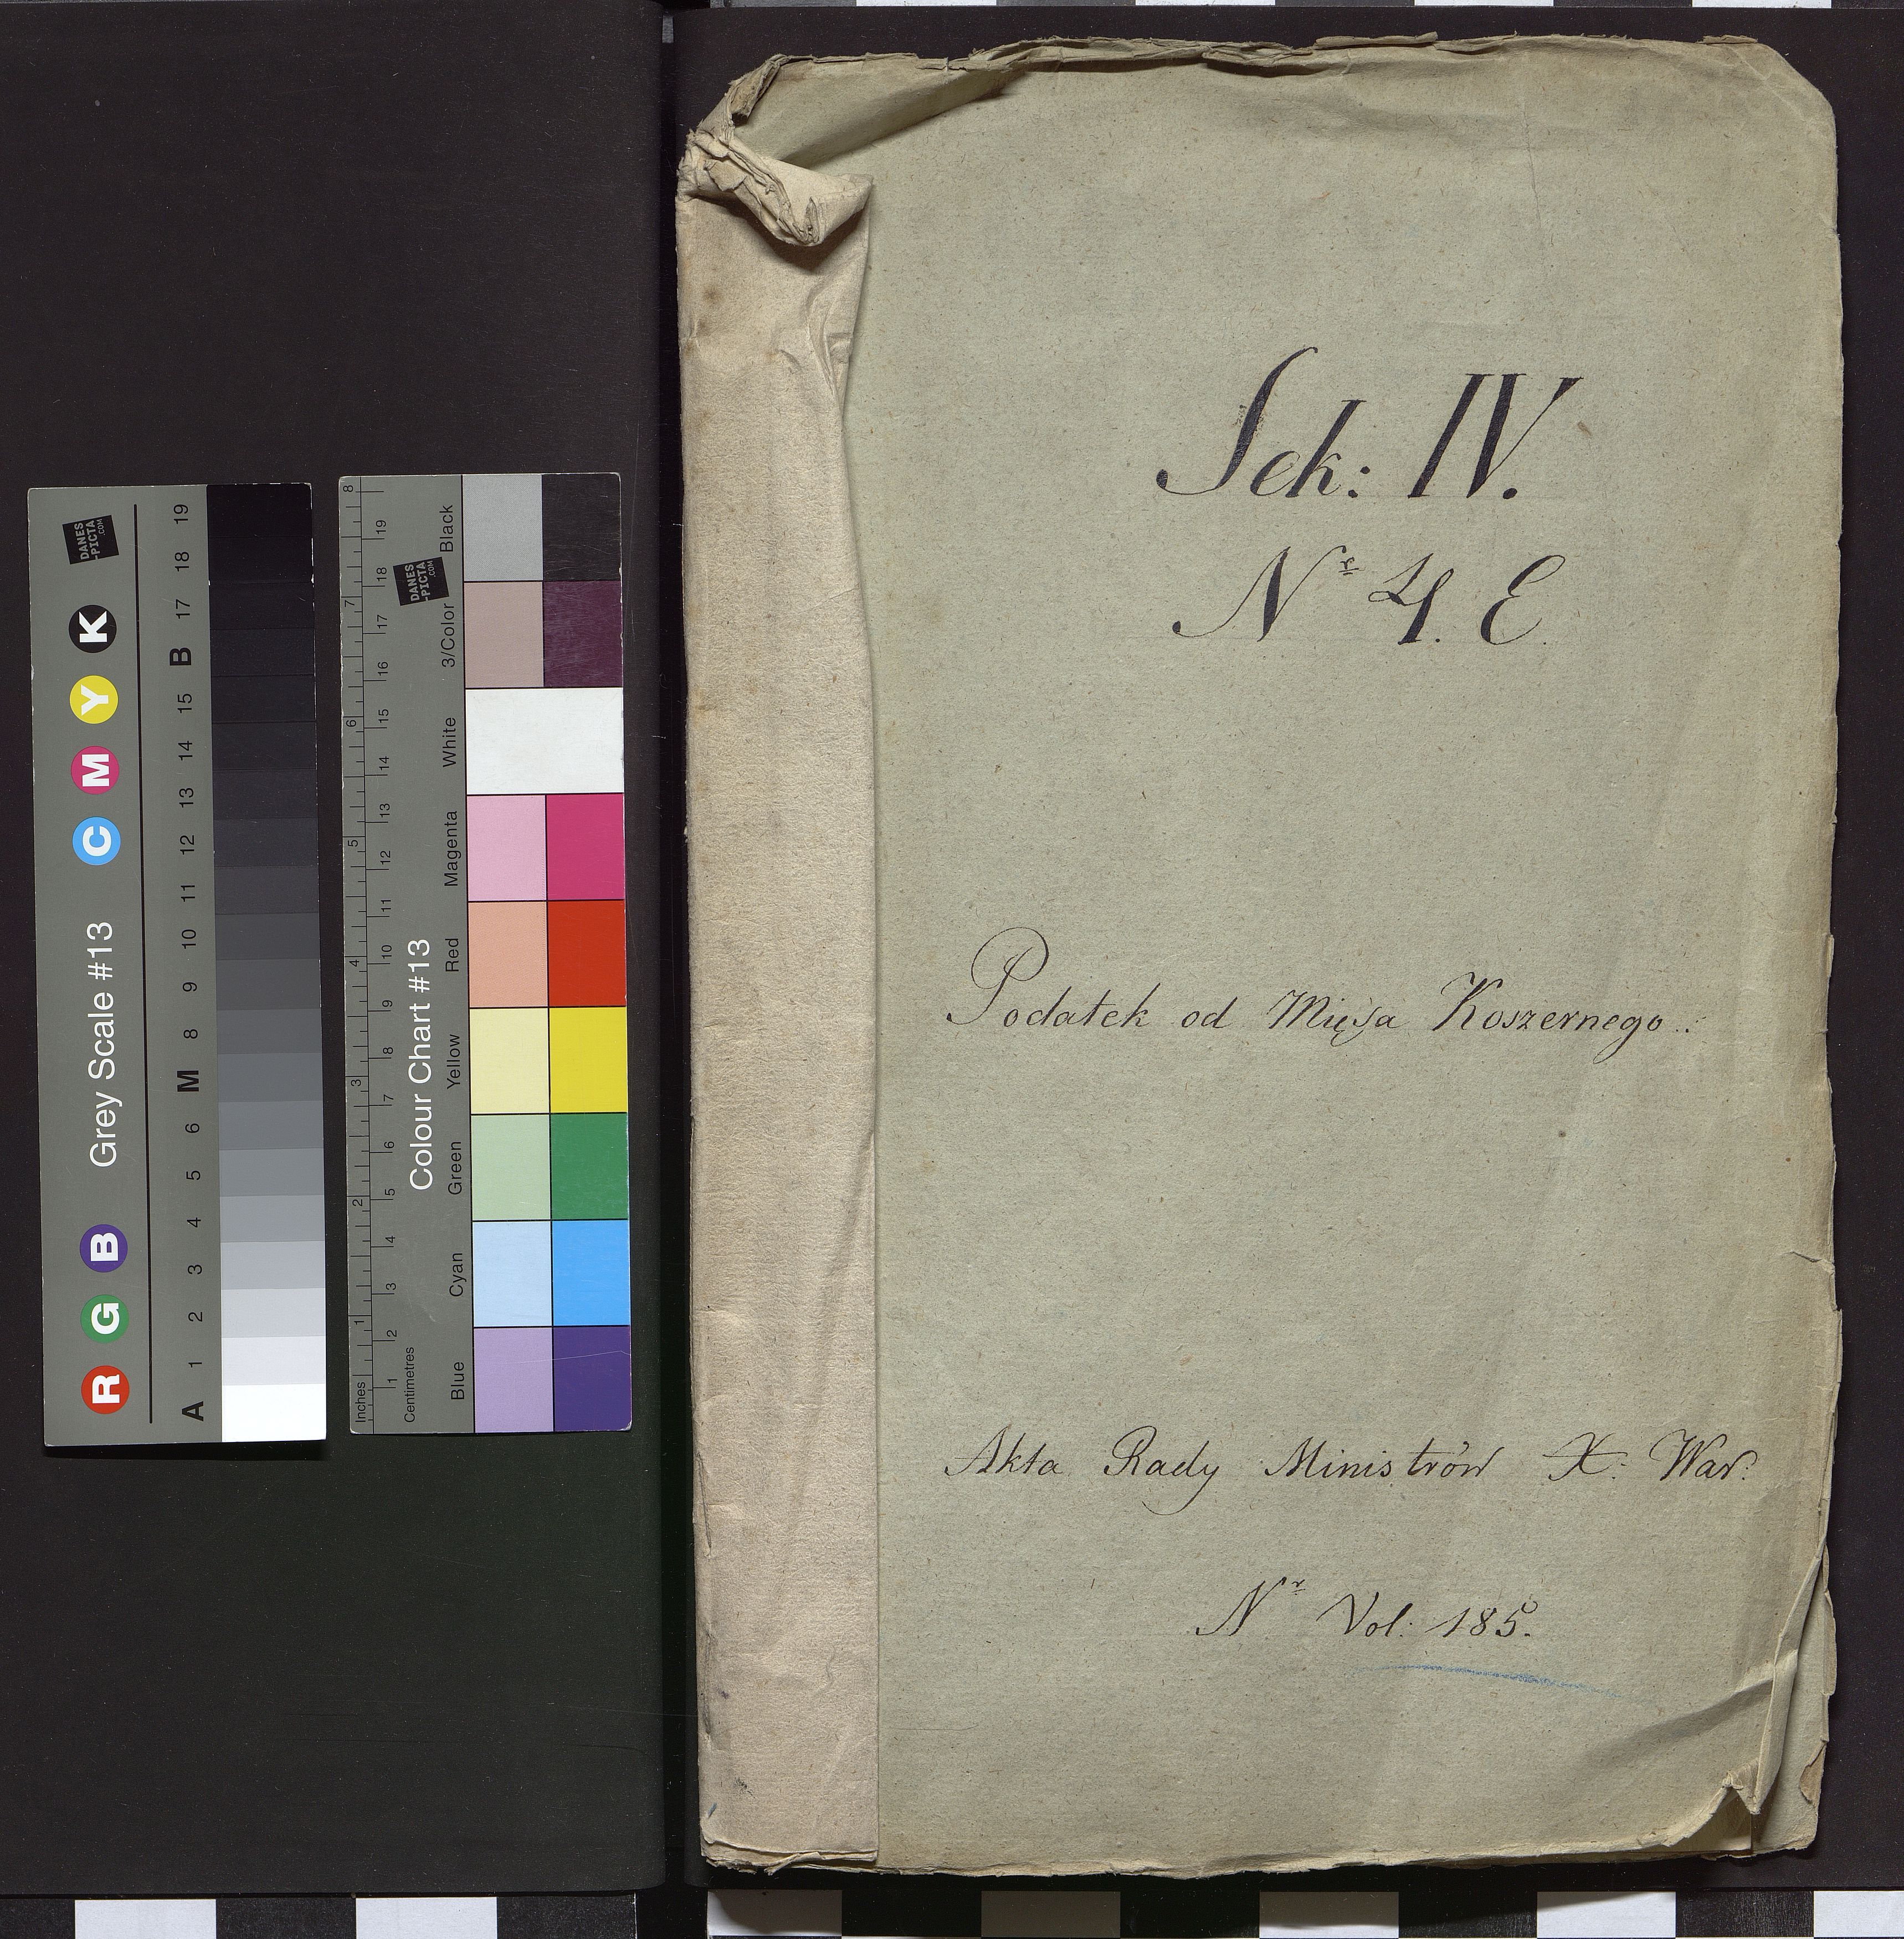 Sek: IV.
Nr 4. E.
Podatek od Mięsa Koszernego.
Akta Rady Ministrów X: War:
Nr Vol: 185.
DANES
-PICTA
.COM
Grey Scale #13
R G B C M Y K
A 1 2 3 4 5 6 M 8 9 10 11 12 13 14 15 B 17 18 19
DANES
-PICTA
.COM
Colour Chart #13
Blue Cyan Green Yellow Red Magenta White 3/Color Black
Inches 1 2 3 4 5 6 7 8
Centimetres 1 2 3 4 5 6 7 8 9 10 11 12 13 14 15 16 17 18 19